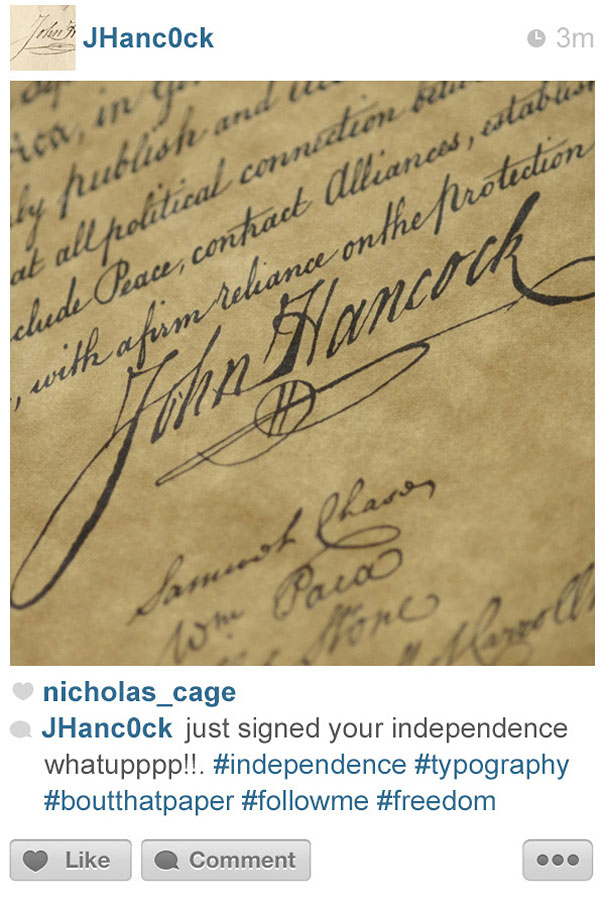 JHanc0ck 3m
by publish and
at all political connection
clude Peace, contract Alliances, establish
, with a firm reliance on the Protection
John Hancock
Samuel Chase
Wm Paca
Stone
nicholas_cage
JHanc0ck just signed your independence
whatupppp!!. #independence #typography
#boutthatpaper #followme #freedom
Like Comment